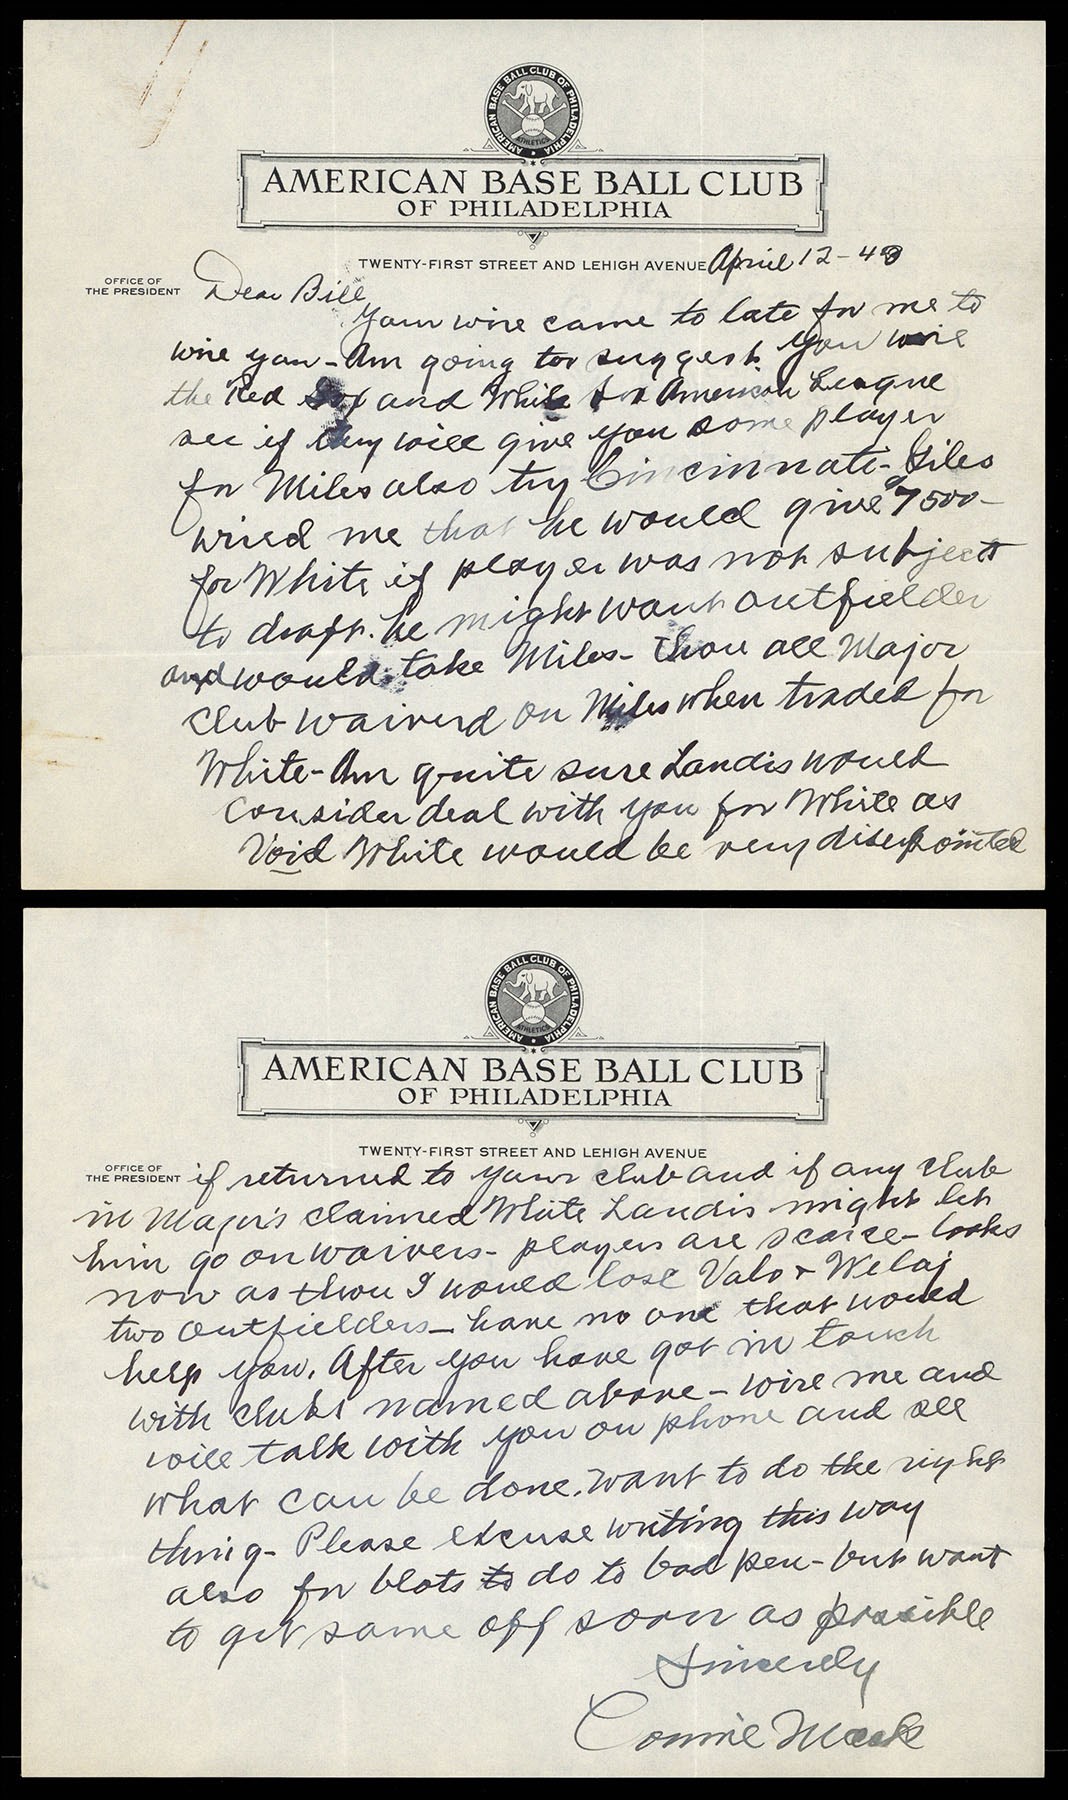 AMERICAN BASE BALL CLUB OF PHILADELPHIA
ATHLETICS
AMERICAN BASE BALL CLUB
OF PHILADELPHIA
TWENTY-FIRST STREET AND LEHIGH AVENUE April 12-43
OFFICE OF
THE PRESIDENT
Dear Bill,
Your wire came to late for me to
wire you - Am going to suggest you wire
the Red Sox and White Sox American League
see if they will give you some player
for Miles also try Cincinnati - Giles
wired me that he would give 7500-
for White if player was not subject
to draft. he might want outfielder
and would take Miles - thou all Major
club waiverd on Miles when traded for
White - Am quite sure Landis would
consider deal with you for White as
Void White would be very disappointed
AMERICAN BASE BALL CLUB OF PHILADELPHIA
ATHLETICS
AMERICAN BASE BALL CLUB
OF PHILADELPHIA
TWENTY-FIRST STREET AND LEHIGH AVENUE
OFFICE OF
THE PRESIDENT
if returned to your club and if any club
in Majors claimed White Landis might let
him go on waivers - players are scarce - looks
now as thou I would lose Valo & Welaj
two outfielders - have no one that would
help you. After you have got in touch
with clubs named above - wire me and
will talk with you on phone and see
what can be done. want to do the right
thing - Please excuse writing this way
also for blots to do to bad pen - but want
to get same off soon as possible
Sincerely
Connie Mack